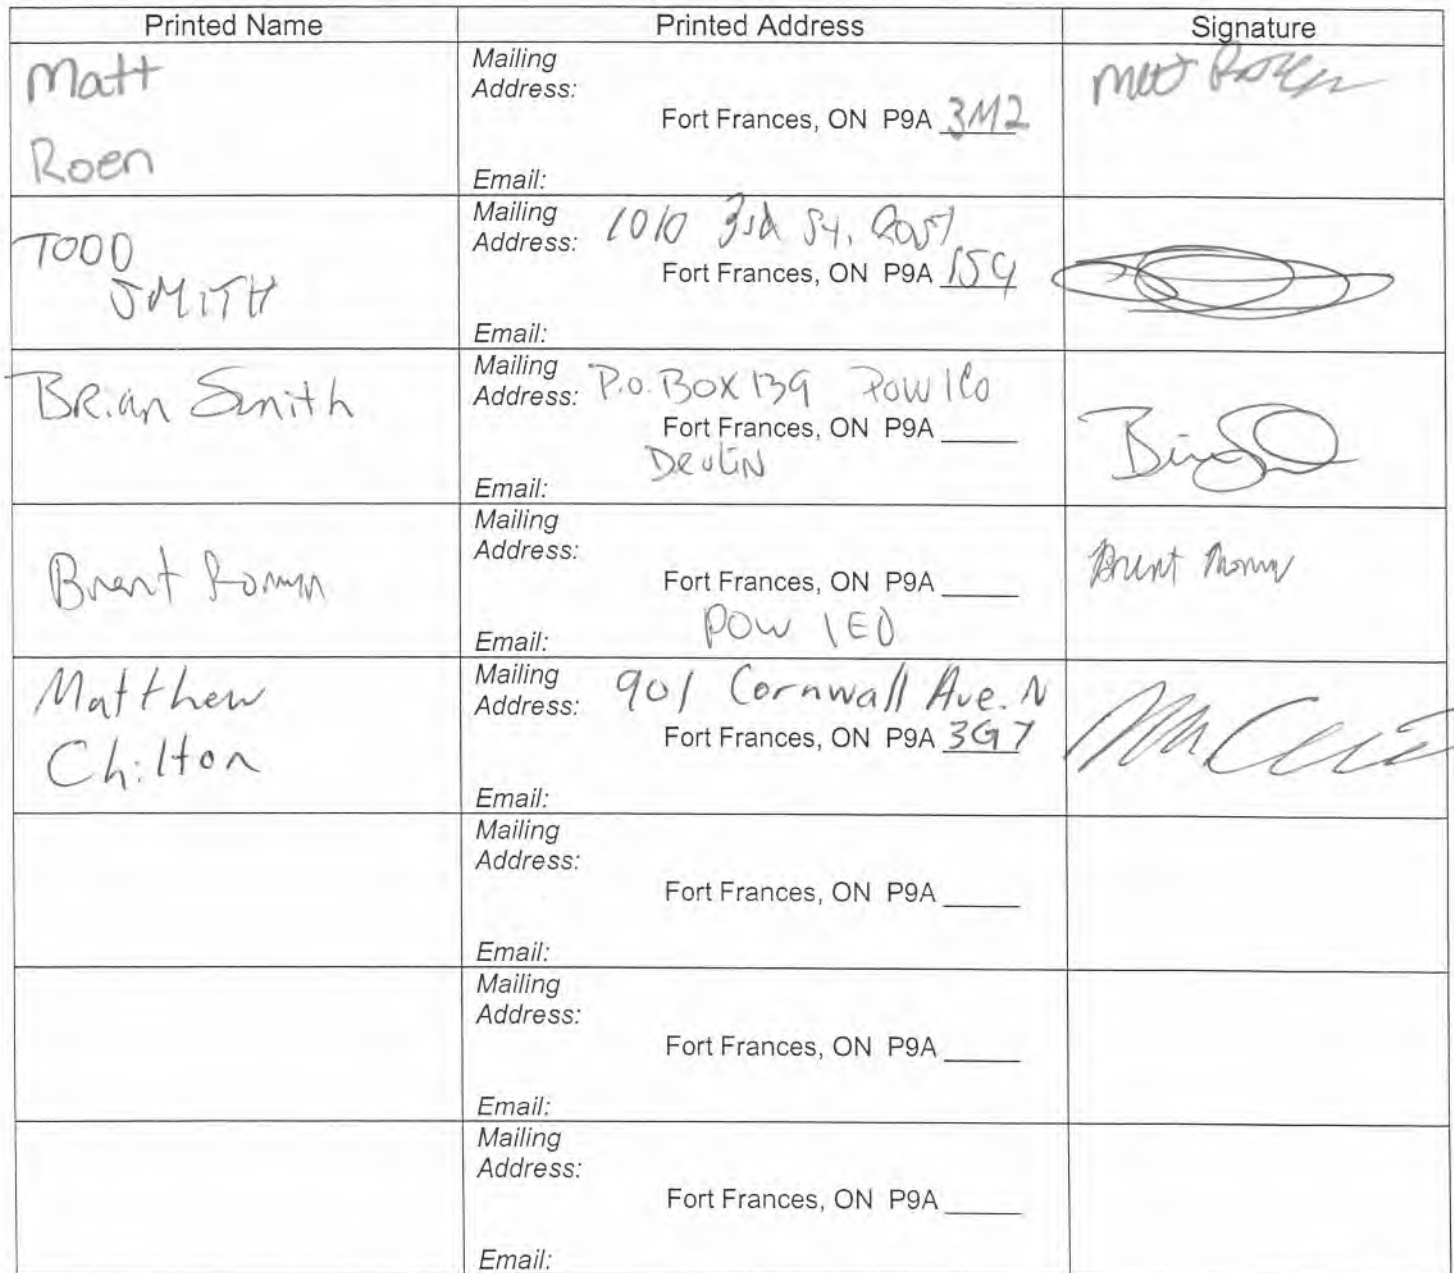 Printed Name Printed Address Signature
Matt
Roen
Mailing
Address:
Fort Frances, ON P9A 3M2
Email:
Matt Roen
TODD
SMITH
Mailing
Address: 1010 3rd St.
Fort Frances, ON P9A
Email:
Brian Smith
Mailing
Address: P.O. BOX 139 POW 1C0
Fort Frances, ON P9A
Devlin
Email:
Brent
Mailing
Address:
Fort Frances, ON P9A
POW 1E0
Email:
Brent
Matthew
Chilton
Mailing
Address: 901 Cornwall Ave. N
Fort Frances, ON P9A 3G7
Email:
Mailing
Address:
Fort Frances, ON P9A
Email:
Mailing
Address:
Fort Frances, ON P9A
Email:
Mailing
Address:
Fort Frances, ON P9A
Email: